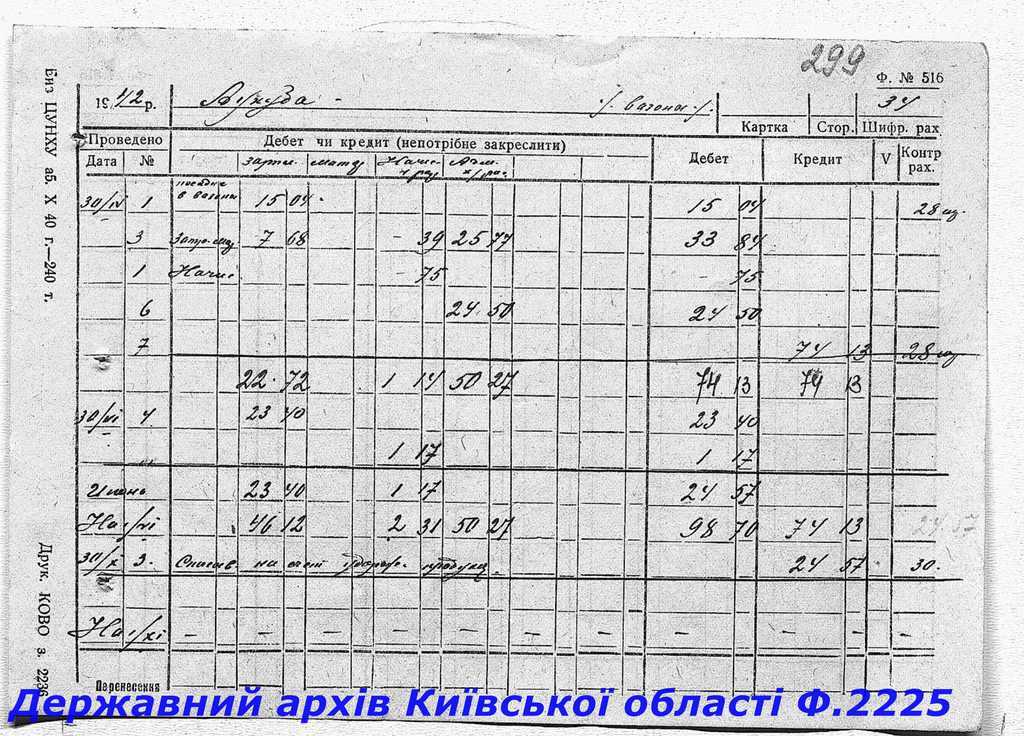 299
Ф. № 516
1942 р. /. вагона /. 34
Картка Стор. Шифр. рах.
Проведено Дебет чи кредит (непотрібне закреслити) Дебет Кредит V Контр рах.
Дата №
30/IV 1 в вагоны 15 04 15 04 28
3 7 68 - 39 25 77 33 84
1 Начис - 75 - 75
6 24 50 24 50
7 74 13 28
22 72 1 14 50 27 74 13 74 13
30/VI 4 23 40 23 40
1 17 1 17
Июнь 23 40 1 17 24 57
На 1/VII 46 12 2 31 50 27 98 70 74 13 24 57
30/X 3. на счет продукц. 24 57 30.
На 1/XI – – – – – – – – – –
Перенесення
Биз ЦУНХУ аб. X 40 г.-240 т.
Друк. КОВО з. 2236
Державний архів Київської області Ф.2225